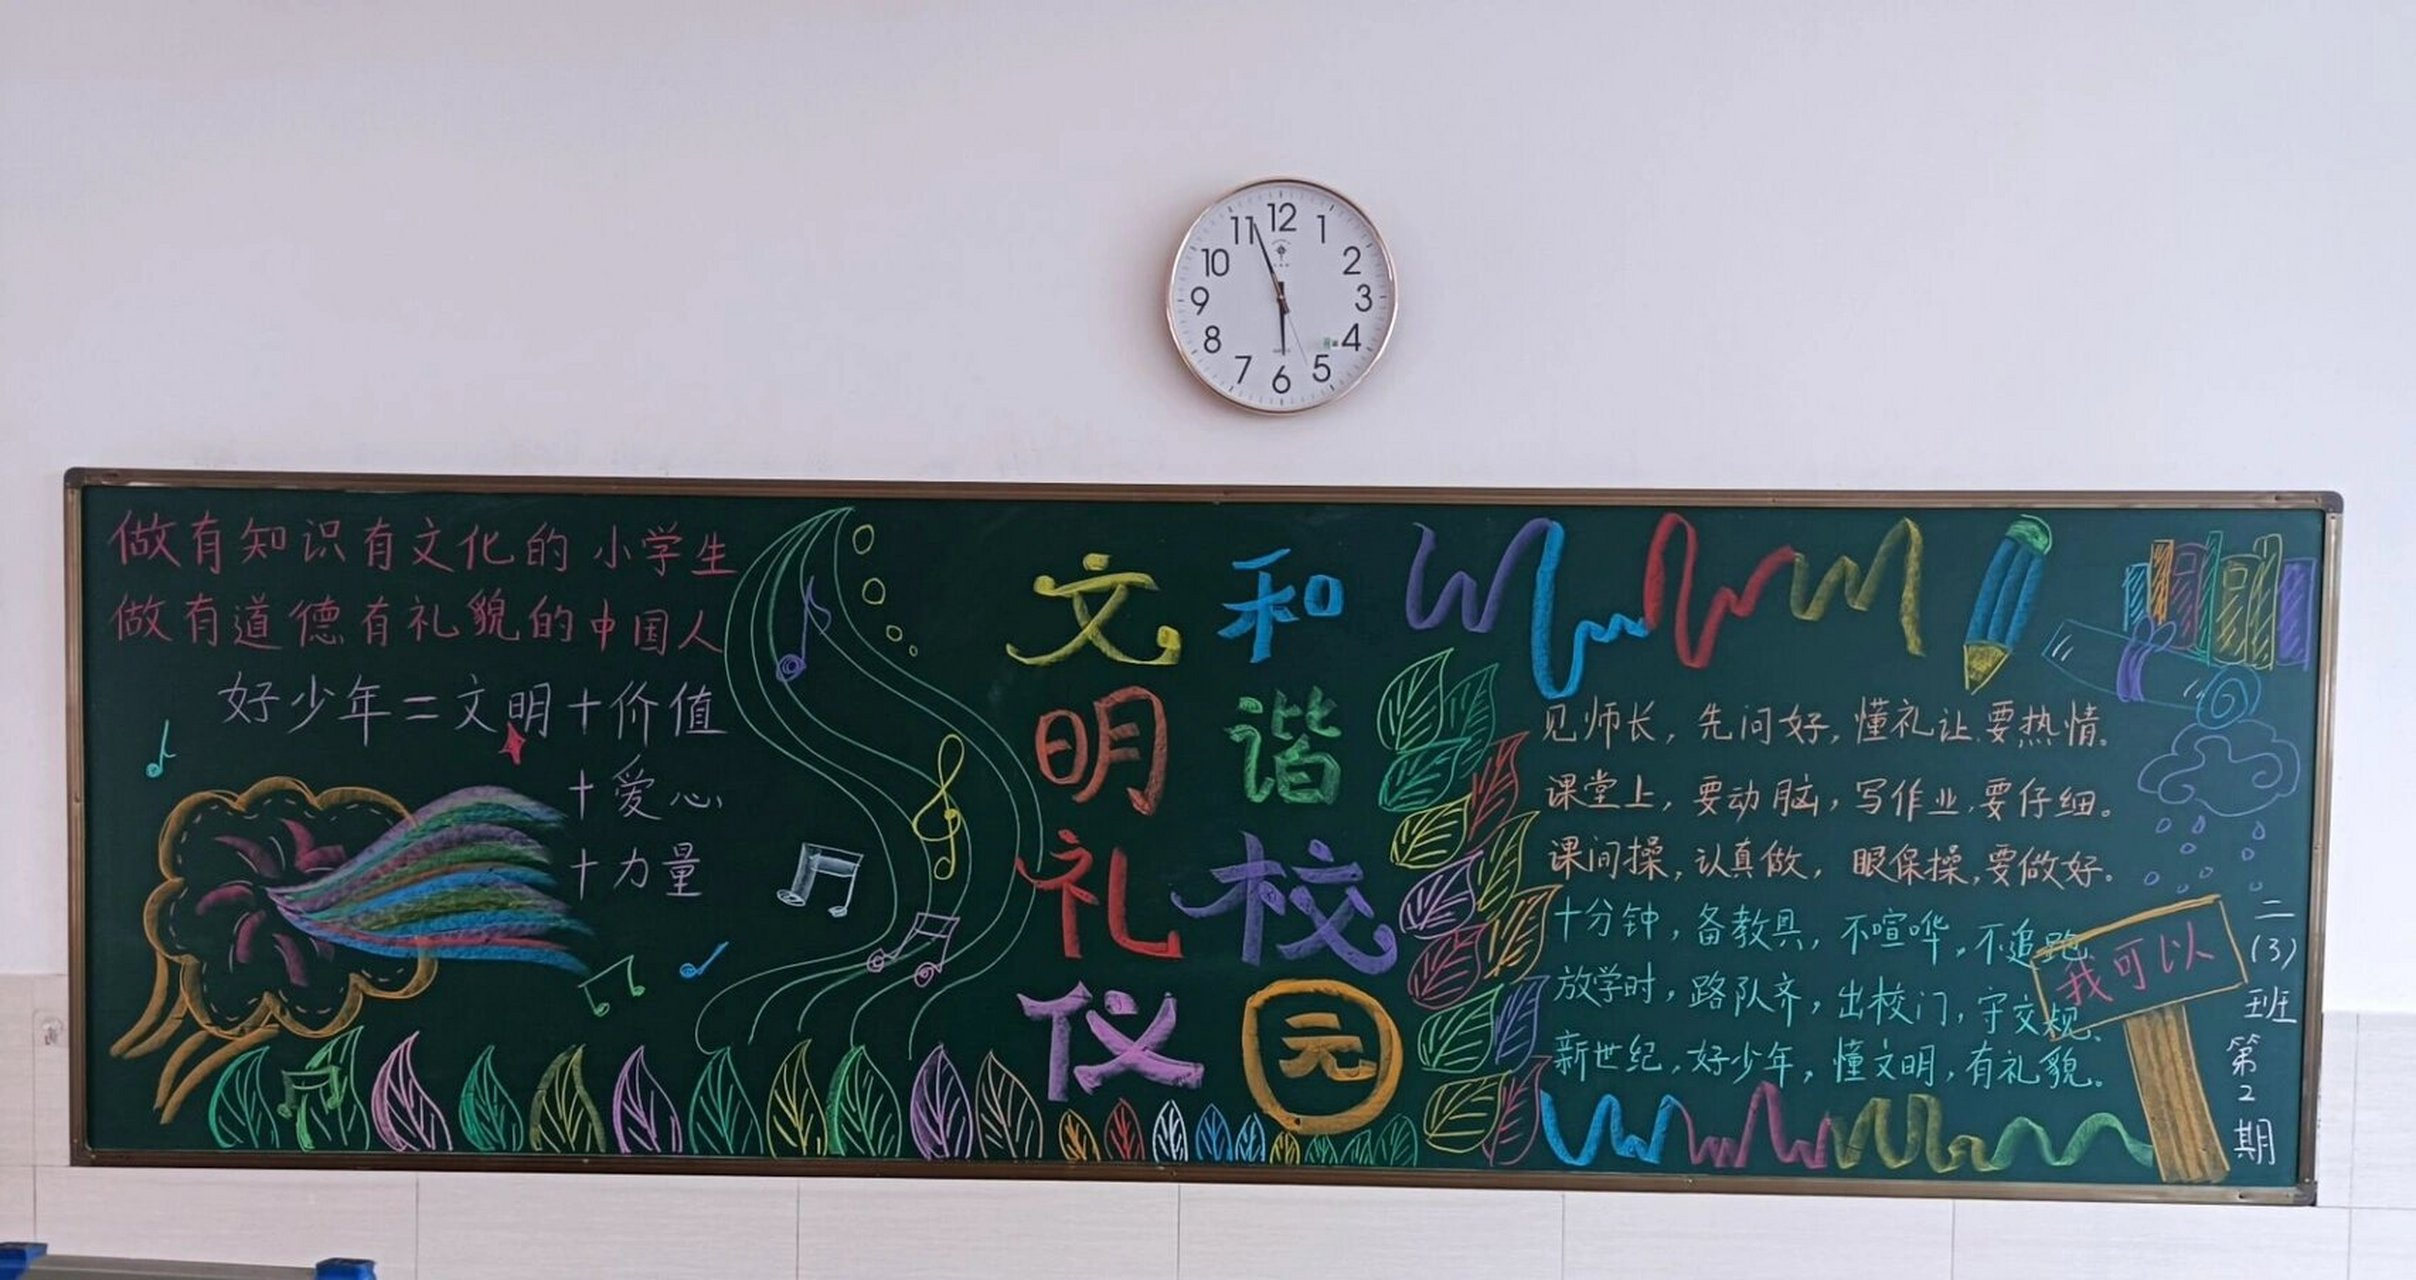 12
1
2
3
4
5
6
7
8
9
10
11
做有知识有文化的小学生
做有道德有礼貌的中国人
好少年=文明+价值
+爱心
+力量
文明礼仪
和谐校园
见师长，先问好，懂礼让，要热情。
课堂上，要动脑，写作业，要仔细。
课间操，认真做，眼保操，要做好。
十分钟，备教具，不喧哗，不追跑
放学时，路队齐，出校门，守交规、
新世纪，好少年，懂文明，有礼貌。
我可以
二(3)班第2期